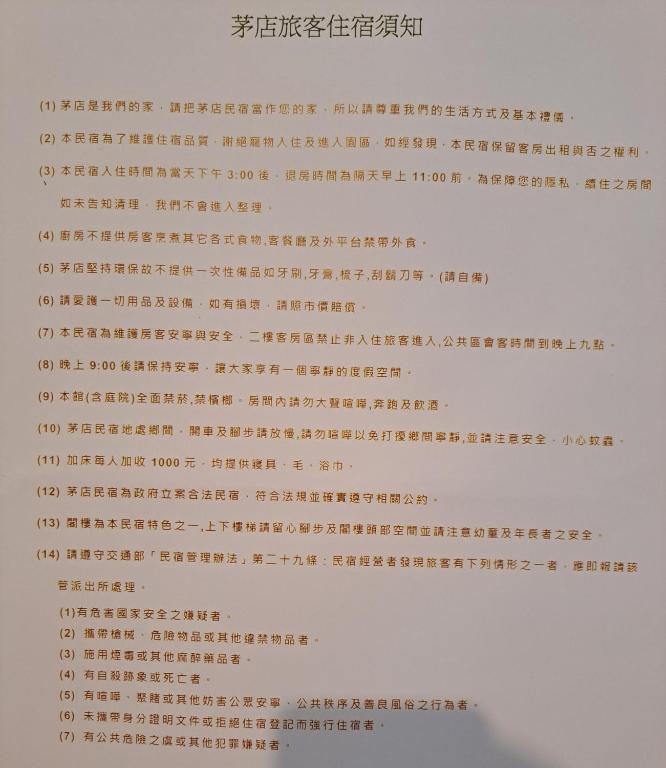 茅店旅客住宿須知
(1) 茅店是我們的家，請把茅店民宿當作您的家，所以請尊重我們的生活方式及基本禮儀。
(2) 本民宿為了維護住宿品質，謝絕寵物入住及進入園區，如經發現，本民宿保留客房出租與否之權利。
(3) 本民宿入住時間為當天下午 3:00 後，退房時間為隔天早上 11:00 前。為保障您的隱私，續住之房間
如未告知清理，我們不會進入整理。
(4) 廚房不提供房客烹煮其它各式食物,客餐廳及外平台禁帶外食。
(5) 茅店堅持環保故不提供一次性備品如牙刷,牙膏,梳子,刮鬍刀等。(請自備)
(6) 請愛護一切用品及設備，如有損壞，請照市價賠償。
(7) 本民宿為維護房客安寧與安全，二樓客房區禁止非入住旅客進入,公共區會客時間到晚上九點。
(8) 晚上 9:00 後請保持安寧，讓大家享有一個寧靜的度假空間。
(9) 本館(含庭院)全面禁菸,禁檳榔。房間內請勿大聲喧嘩,奔跑及飲酒。
(10) 茅店民宿地處鄉間，開車及腳步請放慢,請勿喧嘩以免打擾鄉間寧靜,並請注意安全，小心蚊蟲。
(11) 加床每人加收 1000 元，均提供寢具、毛、浴巾。
(12) 茅店民宿為政府立案合法民宿，符合法規並確實遵守相關公約。
(13) 閣樓為本民宿特色之一,上下樓梯請留心腳步及閣樓頭部空間並請注意幼童及年長者之安全。
(14) 請遵守交通部「民宿管理辦法」第二十九條：民宿經營者發現旅客有下列情形之一者，應即報請該
管派出所處理。
(1)有危害國家安全之嫌疑者。
(2) 攜帶槍械、危險物品或其他違禁物品者。
(3) 施用煙毒或其他麻醉藥品者。
(4) 有自殺跡象或死亡者。
(5) 有喧嘩、聚賭或其他妨害公眾安寧、公共秩序及善良風俗之行為者。
(6) 未攜帶身分證明文件或拒絕住宿登記而強行住宿者。
(7) 有公共危險之虞或其他犯罪嫌疑者。